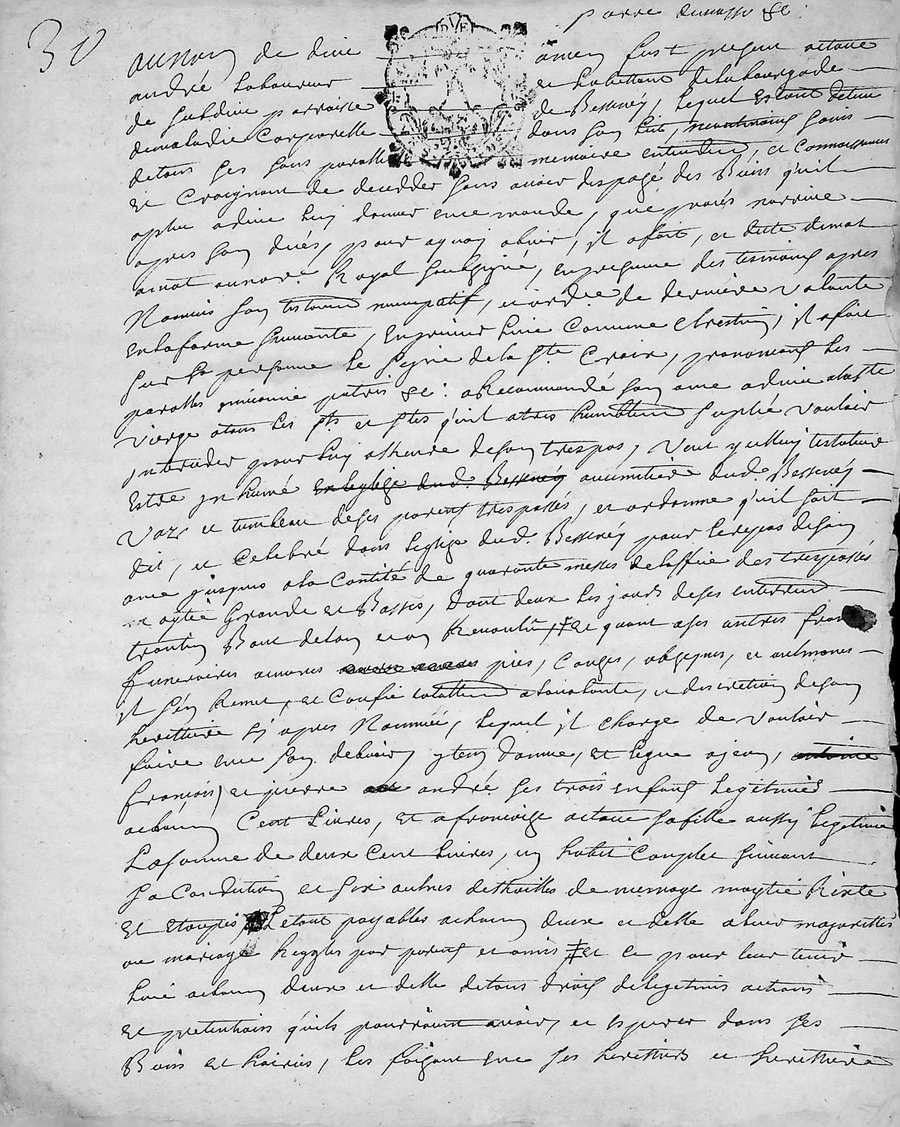 30
pierre dumasso &c:
au nom de dieu amen fust present octave
andré laboureur et habittant de la bourgade
de sabdine parroisse de Bessenéy, lequel estant detenu
de maladie Corporelle dans son lit, neantmoins sains
de tous ses sens parolle memoire entendem et Connoissances
et Craignant de decedder sans avoir disposé des Biens qu'il
a plu a dieu luy donner en ce monde, que procés narrive
apres son decés, pour a quoy obvier, il a fait, et dicte dimot
a mot au no.re Royal soubsigné, en presence des tesmoins apres
Nommés son testament nuncupatif, et ordre de derniere volonte
en la forme suivante, en premier lieu Comme Chrestien, il a fait
sur sa personne le signe de la s.te Croix, prononceant les
parolles in nomine patris &c: a Recommandé son ame a dieu a la s.te
vierge a tous les s.ts et s.tes qu'il a tous humblem supplié vouloir
interceder pour luy a l'heure de son trespas, veut y celluy testateur
Estre inhumé en l'eglise dud. Bessenéy au cimitiere dud. Bessenéy
Vaze et tombeau de ses parens trespassés, et ordonne qu'il soit
dit, et Celebré dans l'eglise dud. Bessenéy pour le repos de son
ame jusques a la Contité de quarante messes de l'office des trespassés
moytié Grande et Basses, dont deux les jours de ses enterrem
trentin Bout de l'an et en Revenlû, ‡ et quant a ses autres frais
funeraires annones pies, Conges, obseques, et aulmones
il s'en Remet, et Confie totallem a la volonte, et discretion de son
herittiere cy apres Nommée, lequel il charge de vouloir
faire en ce son debvoir, ytem donne, et legue a jean, antoine
françois, et pierre andré ses trois enfans legitimes
a chacun Cent Livres, et a françoise octave sa fille aussy legitime
La somme de deux Cent livres, un habit Complet suivant
sa Condution et six autres dethailles de mesnage moytié Rixte
et Etoupes Le tout payables a chacun deux et delle a leur majorittés
ou mariage Regglés par parens et amis ‡ et ce pour leur tenir
lieu a chacun deux et delle de tous droits de legitimes actions
et pretentions qu'ils pourroient avoir, et esperer dans ses
Biens et hoiries, les faizant en ce ses herittiers et herittiere